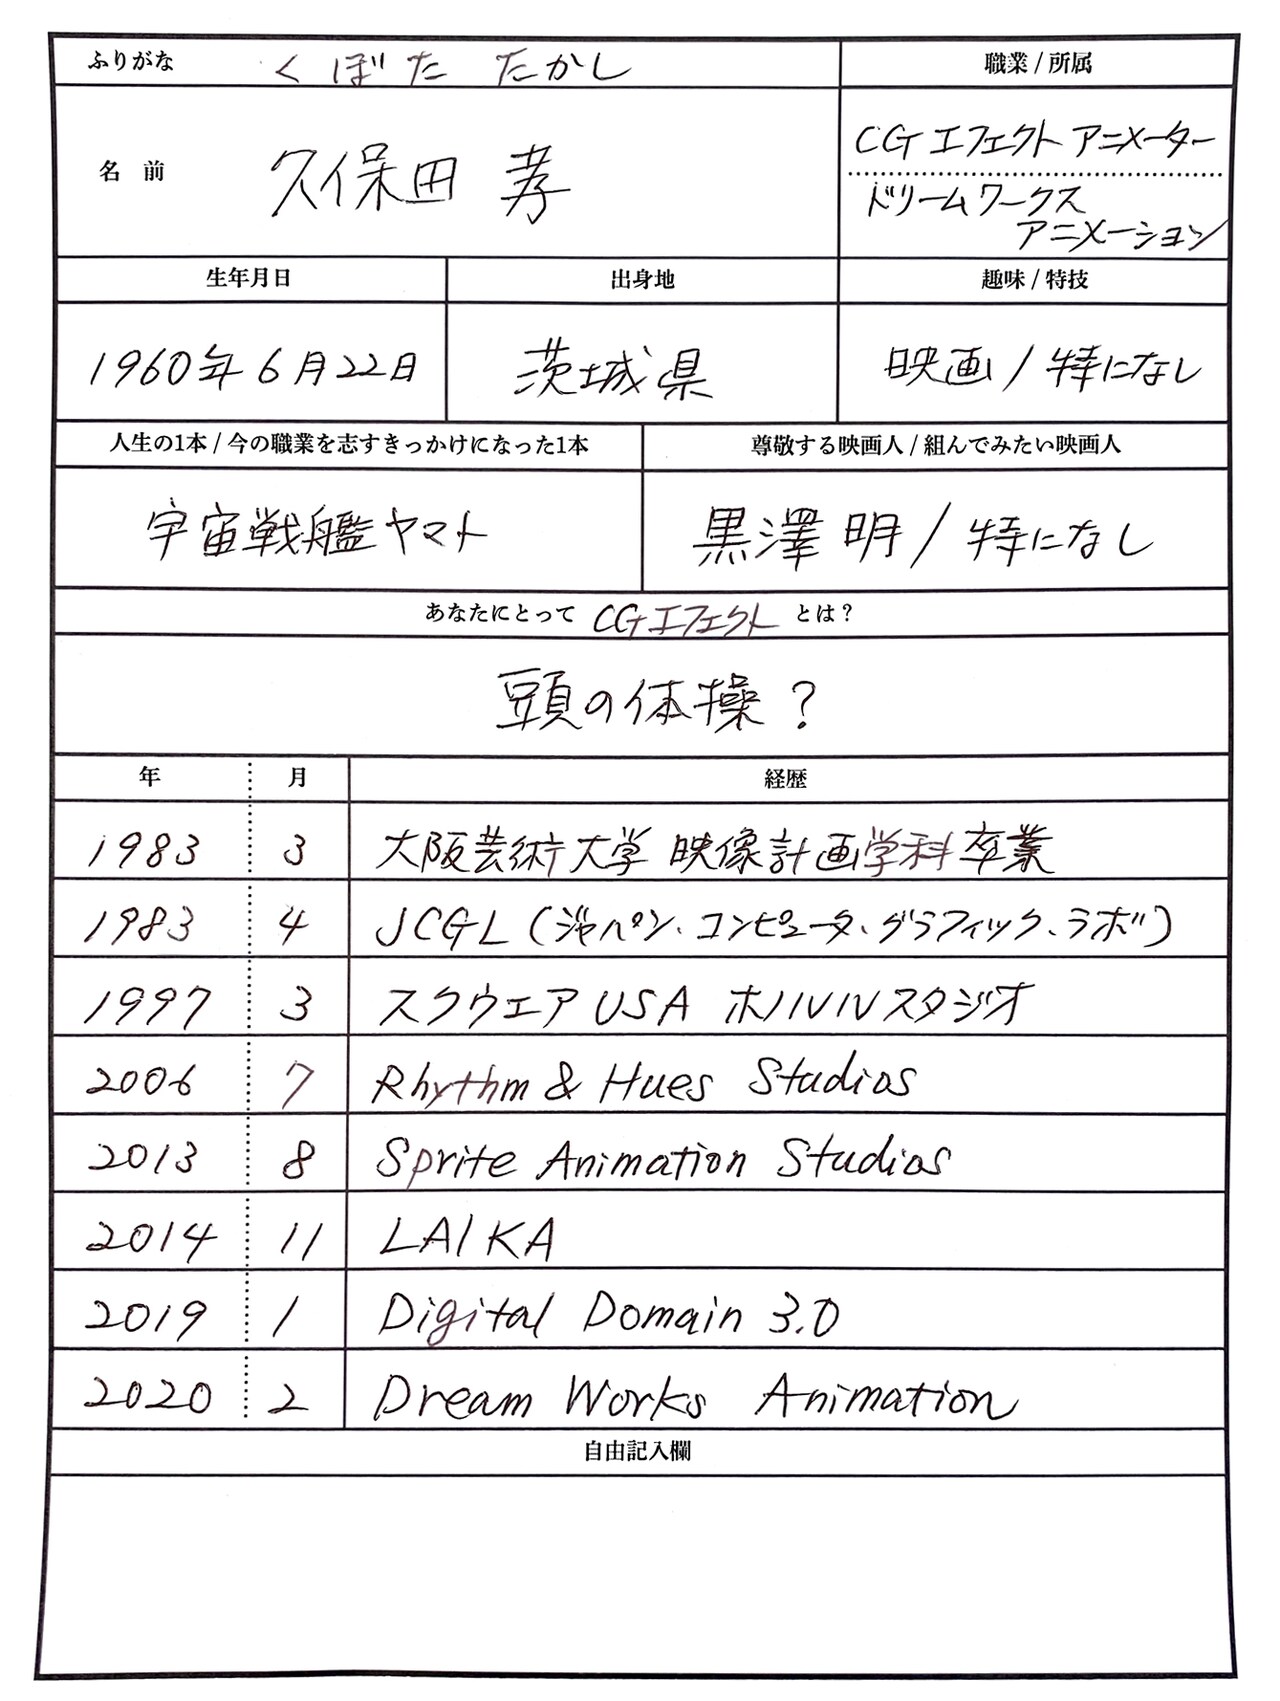 ふりがな くぼた たかし
職業 / 所属
名 前 久保田 孝
CGエフェクト アニメーター
ドリームワークス
アニメーション
生年月日 出身地 趣味 / 特技
1960年6月22日 茨城県 映画 / 特になし
人生の1本 / 今の職業を志すきっかけになった1本 尊敬する映画人 / 組んでみたい映画人
宇宙戦艦ヤマト 黒澤 明 / 特になし
あなたにとって CGエフェクト とは?
頭の体操?
年 月 経歴
1983 3 大阪芸術大学 映像計画学科 卒業
1983 4 JCGL (ジャペン、コンピュータ、グラフィック、ラボ)
1997 3 スクウエア USA ホノルルスタジオ
2006 7 Rhythm & Hues Studios
2013 8 Sprite Animation Studios
2014 11 LAIKA
2019 1 Digital Domain 3.0
2020 2 Dream Works Animation
自由記入欄